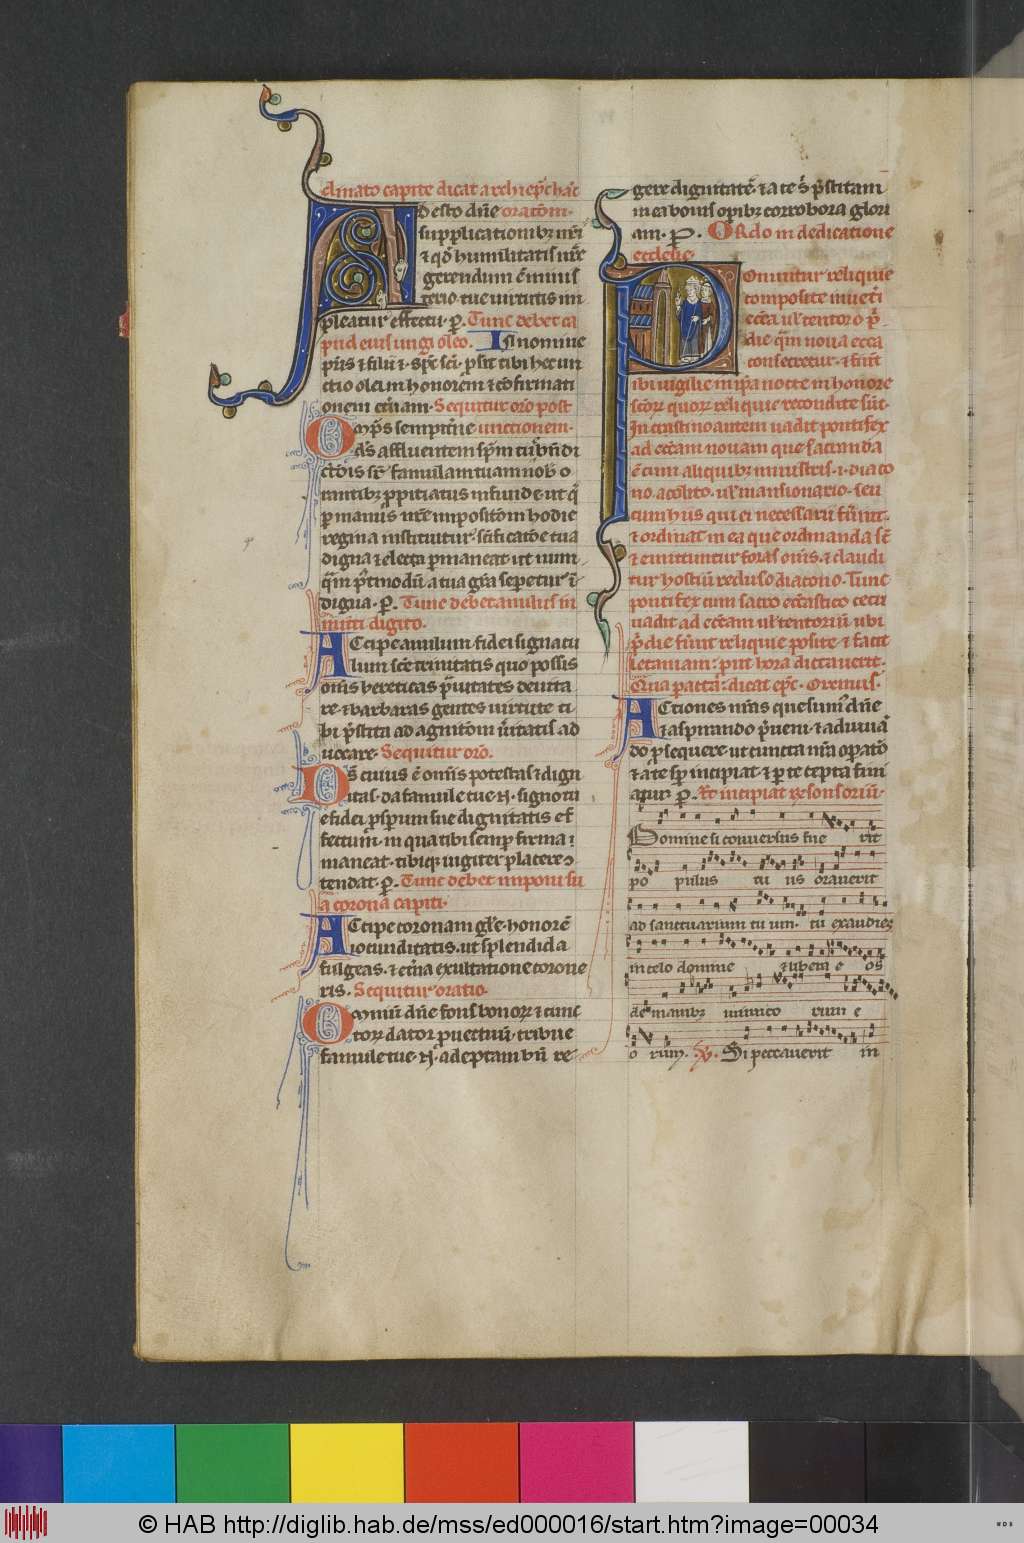 clinato capite dicat archiep̄c hāc
Adesto dn̄e oratōm.
supplicationibꝫ nr̄i
⁊ qd̓ humilitatis nr̄e
gerendum ē minis
terio tue uirtutis im
pleatur effectu. ꝑ. Tunc debet ca
pud eius ungi oleo. In nomine
pr̄is ⁊ filii ⁊ sp̄c sc̄i. ꝓsit tibi hec un
ctio olei in honorem ⁊ cōfirmati
onem et̓nam. Sequitur or̄o post
Om̄ps sempit̓ne unctionem.
ds̄ affluentem sp̄m tu bn̄di
ctōis sr̄ famulam tuam nob̄ o
rantibꝫ ꝓpitiatus infunde. ut q̄
ꝑ manus nr̄e impositōm hodie
regina instituitur. sc̄ificatōe tua
digna ⁊ electa ꝑmaneat. ut num
q̄m p̄tmodū a tua gr̄a sepetur ī
digna. ꝑ. Tunc debet anulus in
miti digito.
Accipe anulum fidei signacu
lum sc̄e trinitatis quo possis
om̄s hereticas p̄uitates deuita
re. ⁊ barbaras gentes uirtute ti
bi p̄stita ad agnitōm u̓itatis ad
uocare. Sequitur or̄o.
Ds̄ cuius ē om̄is potestas ⁊ digni
itas. da famule tue .N. signo tu
e fidei ꝓsp̄um sue dignitatis ef
fectum. in qua tibi semꝑ firma
maneat. tibiqꝫ iugiter placere
tendat. ꝑ. Tunc debet imponi su
a corona capiti.
Accipe coronam gl̄e. honorē
iocunditatis. ut splendida
fulgeas. ⁊ et̓na exultatione corone
ris. Sequitur oratio.
Omniū dn̄e fons bonoꝝ ⁊ cunc
toꝝ dator ꝓuectuū. tribue
famule tue .N. adeptam bn̄ re
gere dignitatē. ⁊ a te s̄ p̄stitam
in ea bonis opibꝫ corrobora glori
am. ꝑ. ORdo in dedicatione
ecclesie.
Ponuntur reliquie
composite in uet̓i
ecc̄a uł tentorio p̄
die q̄m noua ecc̄a
consecretur. ⁊ fiūt
ibi uigilie in ip̄a nocte in honore
sc̄oꝝ quoꝝ reliquie recondite sūt.
In crastino autem uadit pontifex
ad ecc̄am nouam que sacranda
ē cum aliquibꝫ ministris .i. diaco
no. acolito. uł mansionario. seu
cum hiis qui ei necessarii fuīnt.
⁊ ordinat in ea que ordinanda st̄
⁊ emittuntur foras om̄s. ⁊ claudi
tur hostiū recluso diacono. Tunc
pontifex cum sacro ecc̄astico cetu
uadit ad ecc̄am uł tentoriū ubi
p̄die fuīnt reliquie posite ⁊ facit
letaniam: put hora dictauerit.
Qua pacta: dicat ep̄c. Oremus.
Actiones nr̄as quesum̓ dn̄e
⁊ aspirando p̄ueni. ⁊ adiuuā
do ꝓsequere ut cuncta nr̄a oꝑatō
⁊ a te sꝑ incipiat. ⁊ ꝑ te cepta fini
atur. ꝑ. Re incipiat responsoriū.
Domine si conuersus fue rit
po pulus tu us orauerit
ad sanctuarium tu um. tu exaudies
in celo domine ⁊ libera e os
de manibꝫ inimico rum e
o rum. ℣. Si peccauerit in
© HAB http://diglib.hab.de/mss/ed000016/start.htm?image=00034